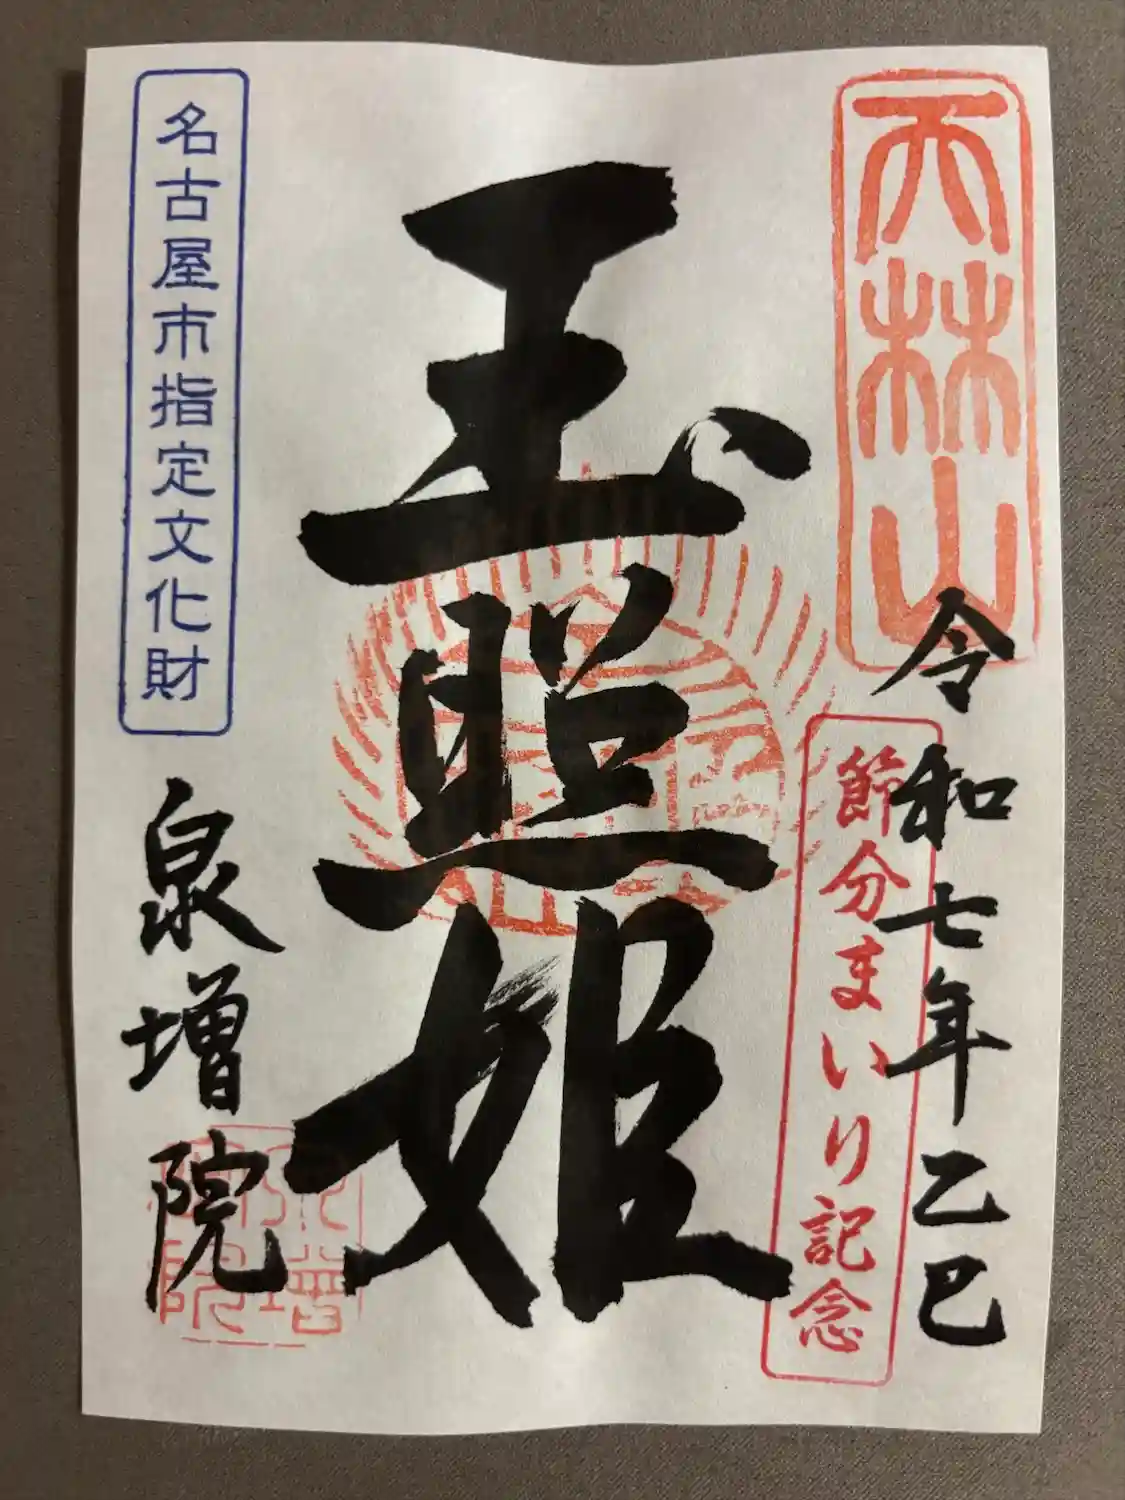 天林山
令和七年乙巳
節分まいり記念
玉照姫
名古屋市指定文化財
泉増院
泉増院